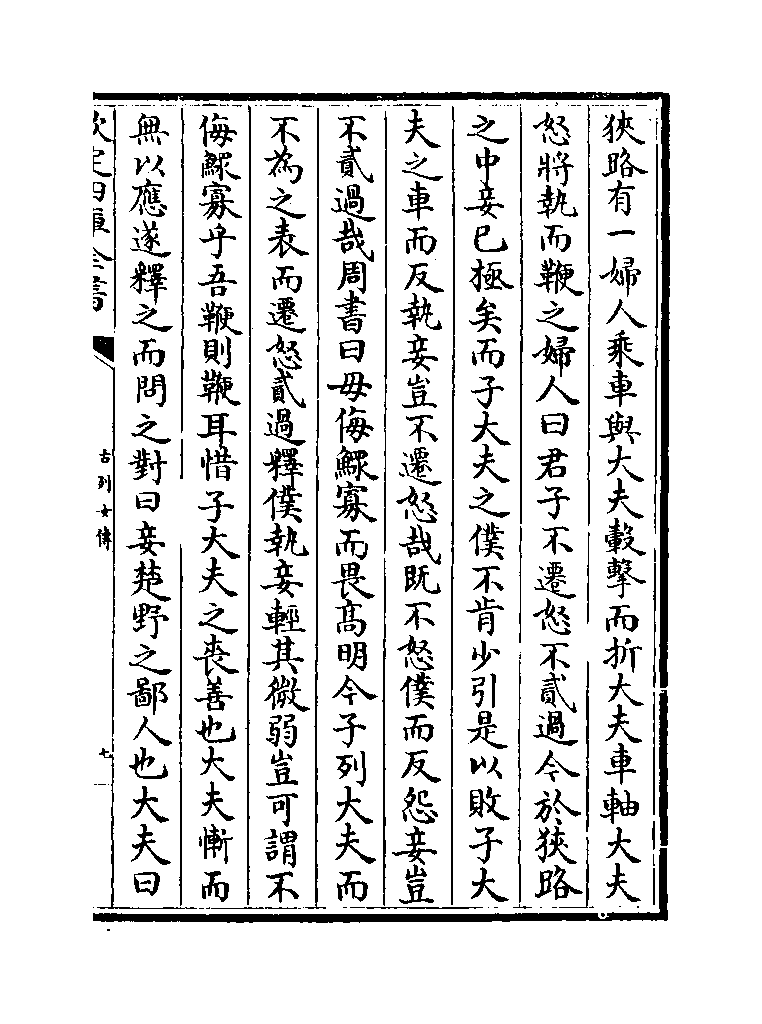 狹路有一婦人乘車與大夫轂擊而折大夫車軸大夫
怒將執而鞭之婦人曰君子不遷怒不貳過今於狹路
之中妾已極矣而子大夫之僕不肯少引是以敗子大
夫之車而反執妾豈不遷怒哉既不怒僕而反怨妾豈
不貳過哉周書曰毋侮鰥寡而畏髙明今子列大夫而
不為之表而遷怒貳過釋僕執妾輕其微弱豈可謂不
侮鰥寡乎吾鞭則鞭耳惜子大夫之喪善也大夫慚而
無以應遂釋之而問之對曰妾楚野之鄙人也大夫曰
欽定四庫全書
古列女傳
七